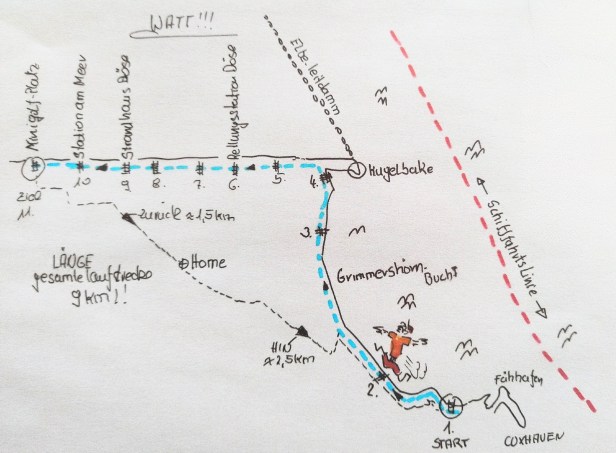 WATT!!!
Elbe-leitdamm
Minigolf-Platz
Station am Meer
Strandhaus Döse
Rettungsstation Döse
Kugelbake
Ziel
11.
10.
9.
8.
7.
6.
5.
4.
3.
2.
1.
START
zurück ≈ 1,5km
Home
LÄNGE
gesamte Laufstrecke
9 km!!
HIN
≈ 2,5km
Grimmershörn-
Bucht
Schifffahrtslinie
Fährhafen
COXHAVEN